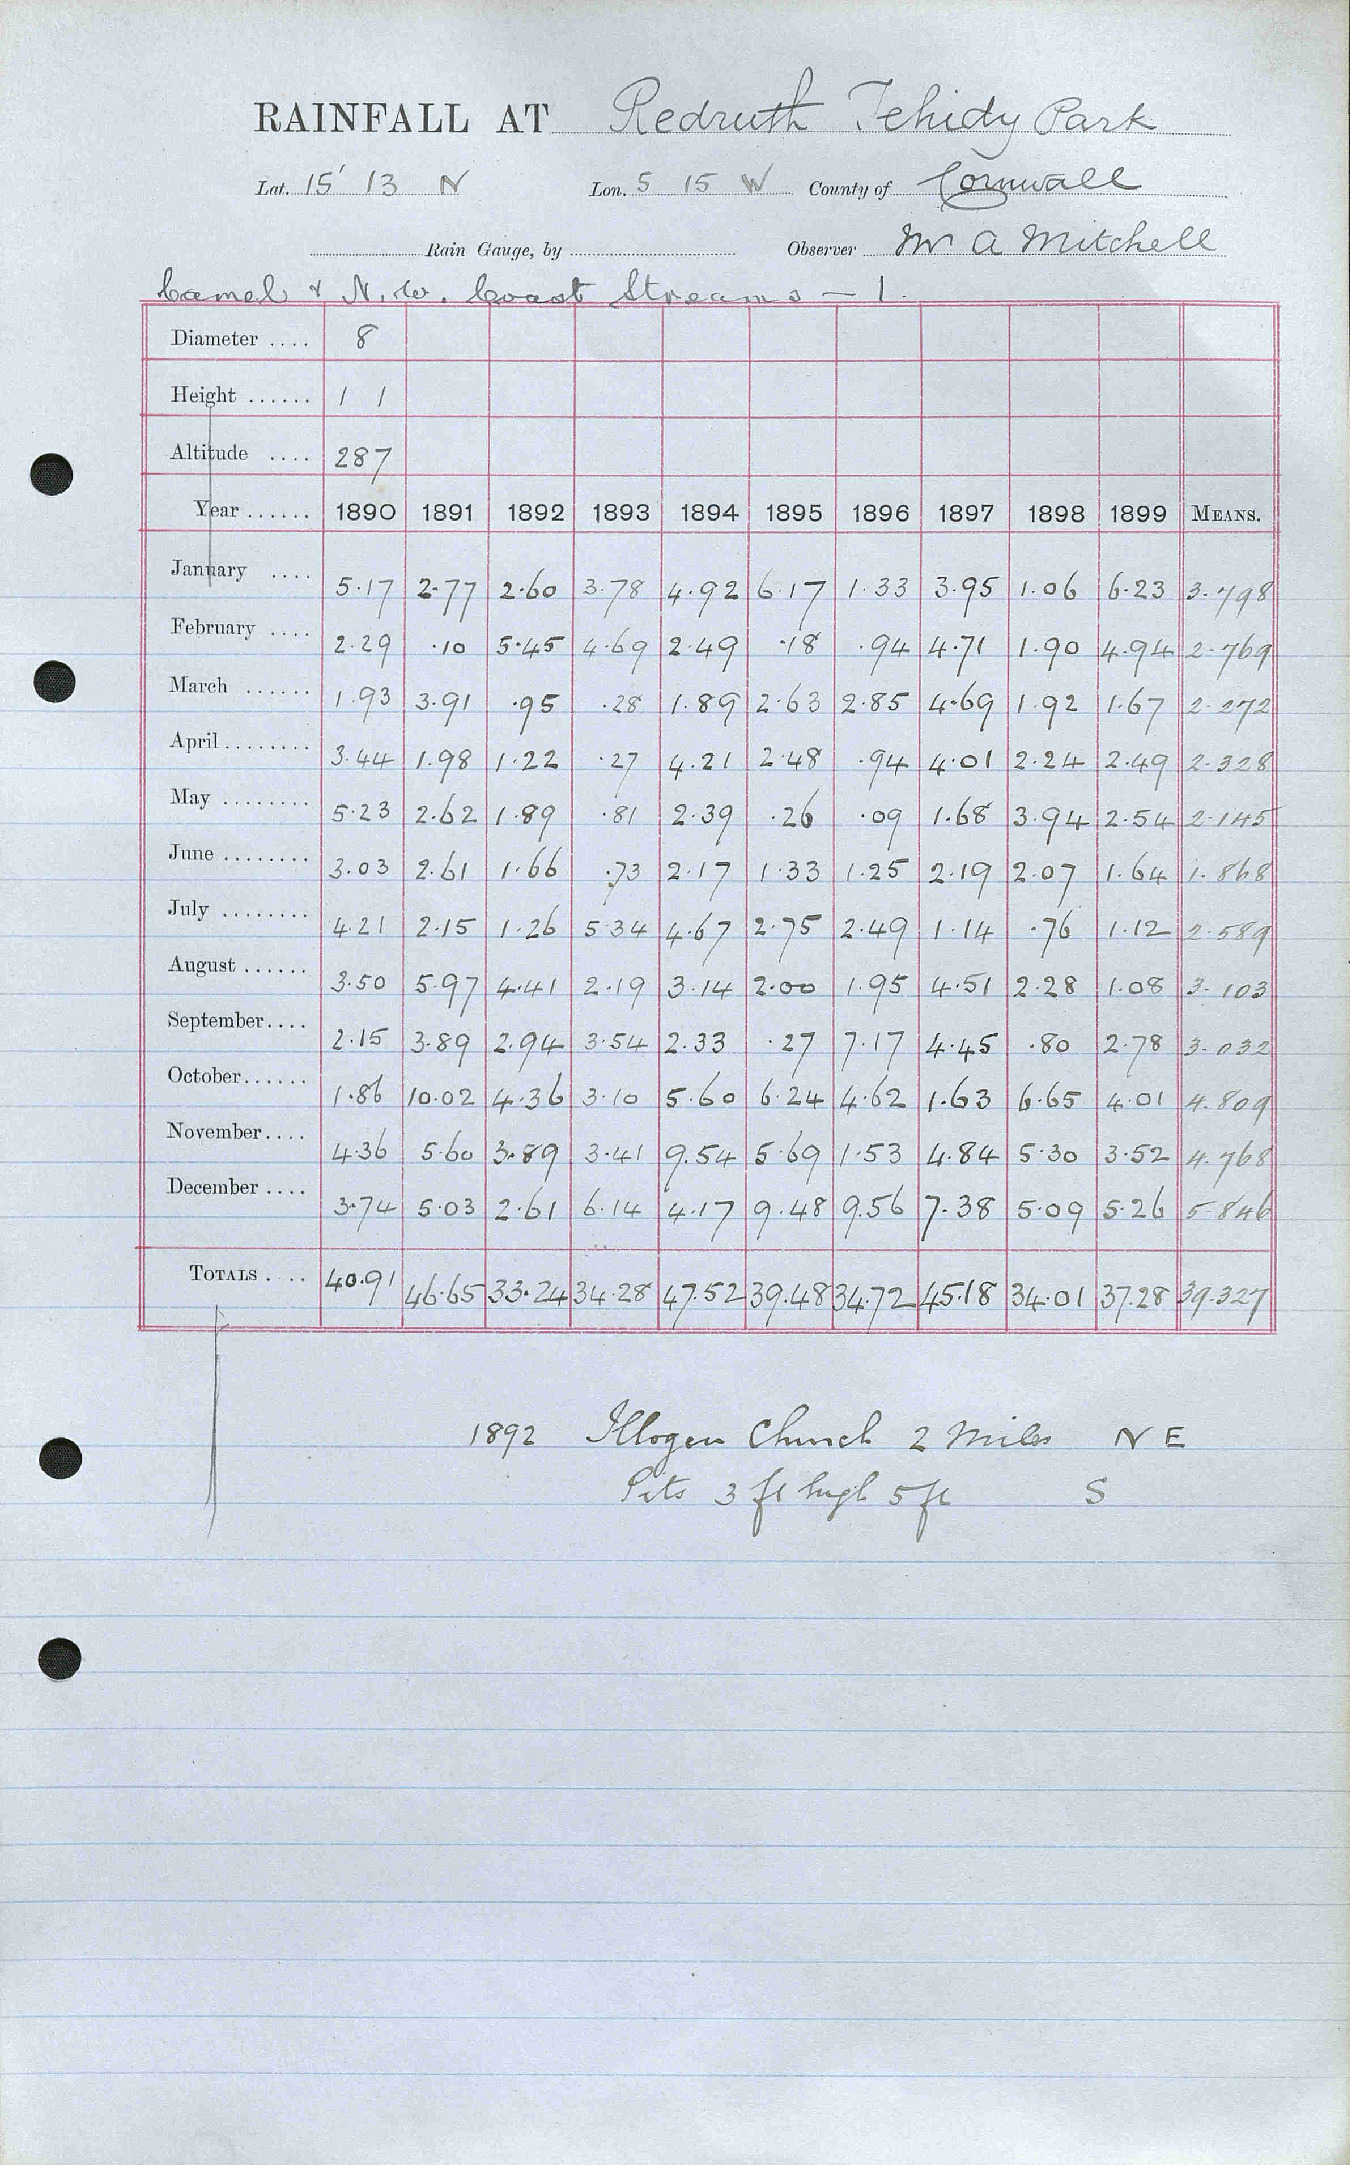 RAINFALL AT Redruth Tehidy Park
Lat. 15' 13 N Lon. 5 15 W County of Cornwall
Rain Gauge, by Observer Mr A Mitchell
Camel & N.W. Coast Streams — 1.
Diameter .... 8
Height ...... 1 1
Altitude .... 287
Year ...... 1890 1891 1892 1893 1894 1895 1896 1897 1898 1899 MEANS.
January .... 5.17 2.77 2.60 3.78 4.92 6.17 1.33 3.95 1.06 6.23 3.798
February .... 2.29 .10 5.45 4.69 2.49 .18 .94 4.71 1.90 4.94 2.769
March ...... 1.93 3.91 .95 .28 1.89 2.63 2.85 4.69 1.92 1.67 2.272
April ........ 3.44 1.98 1.22 .27 4.21 2.48 .94 4.01 2.24 2.49 2.328
May ........ 5.23 2.62 1.89 .81 2.39 .26 .09 1.68 3.94 2.54 2.145
June ........ 3.03 2.61 1.66 .73 2.17 1.33 1.25 2.19 2.07 1.64 1.868
July ........ 4.21 2.15 1.26 5.34 4.67 2.75 2.49 1.14 .76 1.12 2.589
August ...... 3.50 5.97 4.41 2.19 3.14 2.00 1.95 4.51 2.28 1.08 3.103
September.... 2.15 3.89 2.94 3.54 2.33 .27 7.17 4.45 .80 2.78 3.032
October...... 1.86 10.02 4.36 3.10 5.60 6.24 4.62 1.63 6.65 4.01 4.809
November.... 4.36 5.60 3.89 3.41 9.54 5.69 1.53 4.84 5.30 3.52 4.768
December .... 3.74 5.03 2.61 6.14 4.17 9.48 9.56 7.38 5.09 5.26 5.846
TOTALS .... 40.91 46.65 33.24 34.28 47.52 39.48 34.72 45.18 34.01 37.28 39.327
1892 Illogen Church 2 Miles N E
Pits 3 ft high 5 ft S